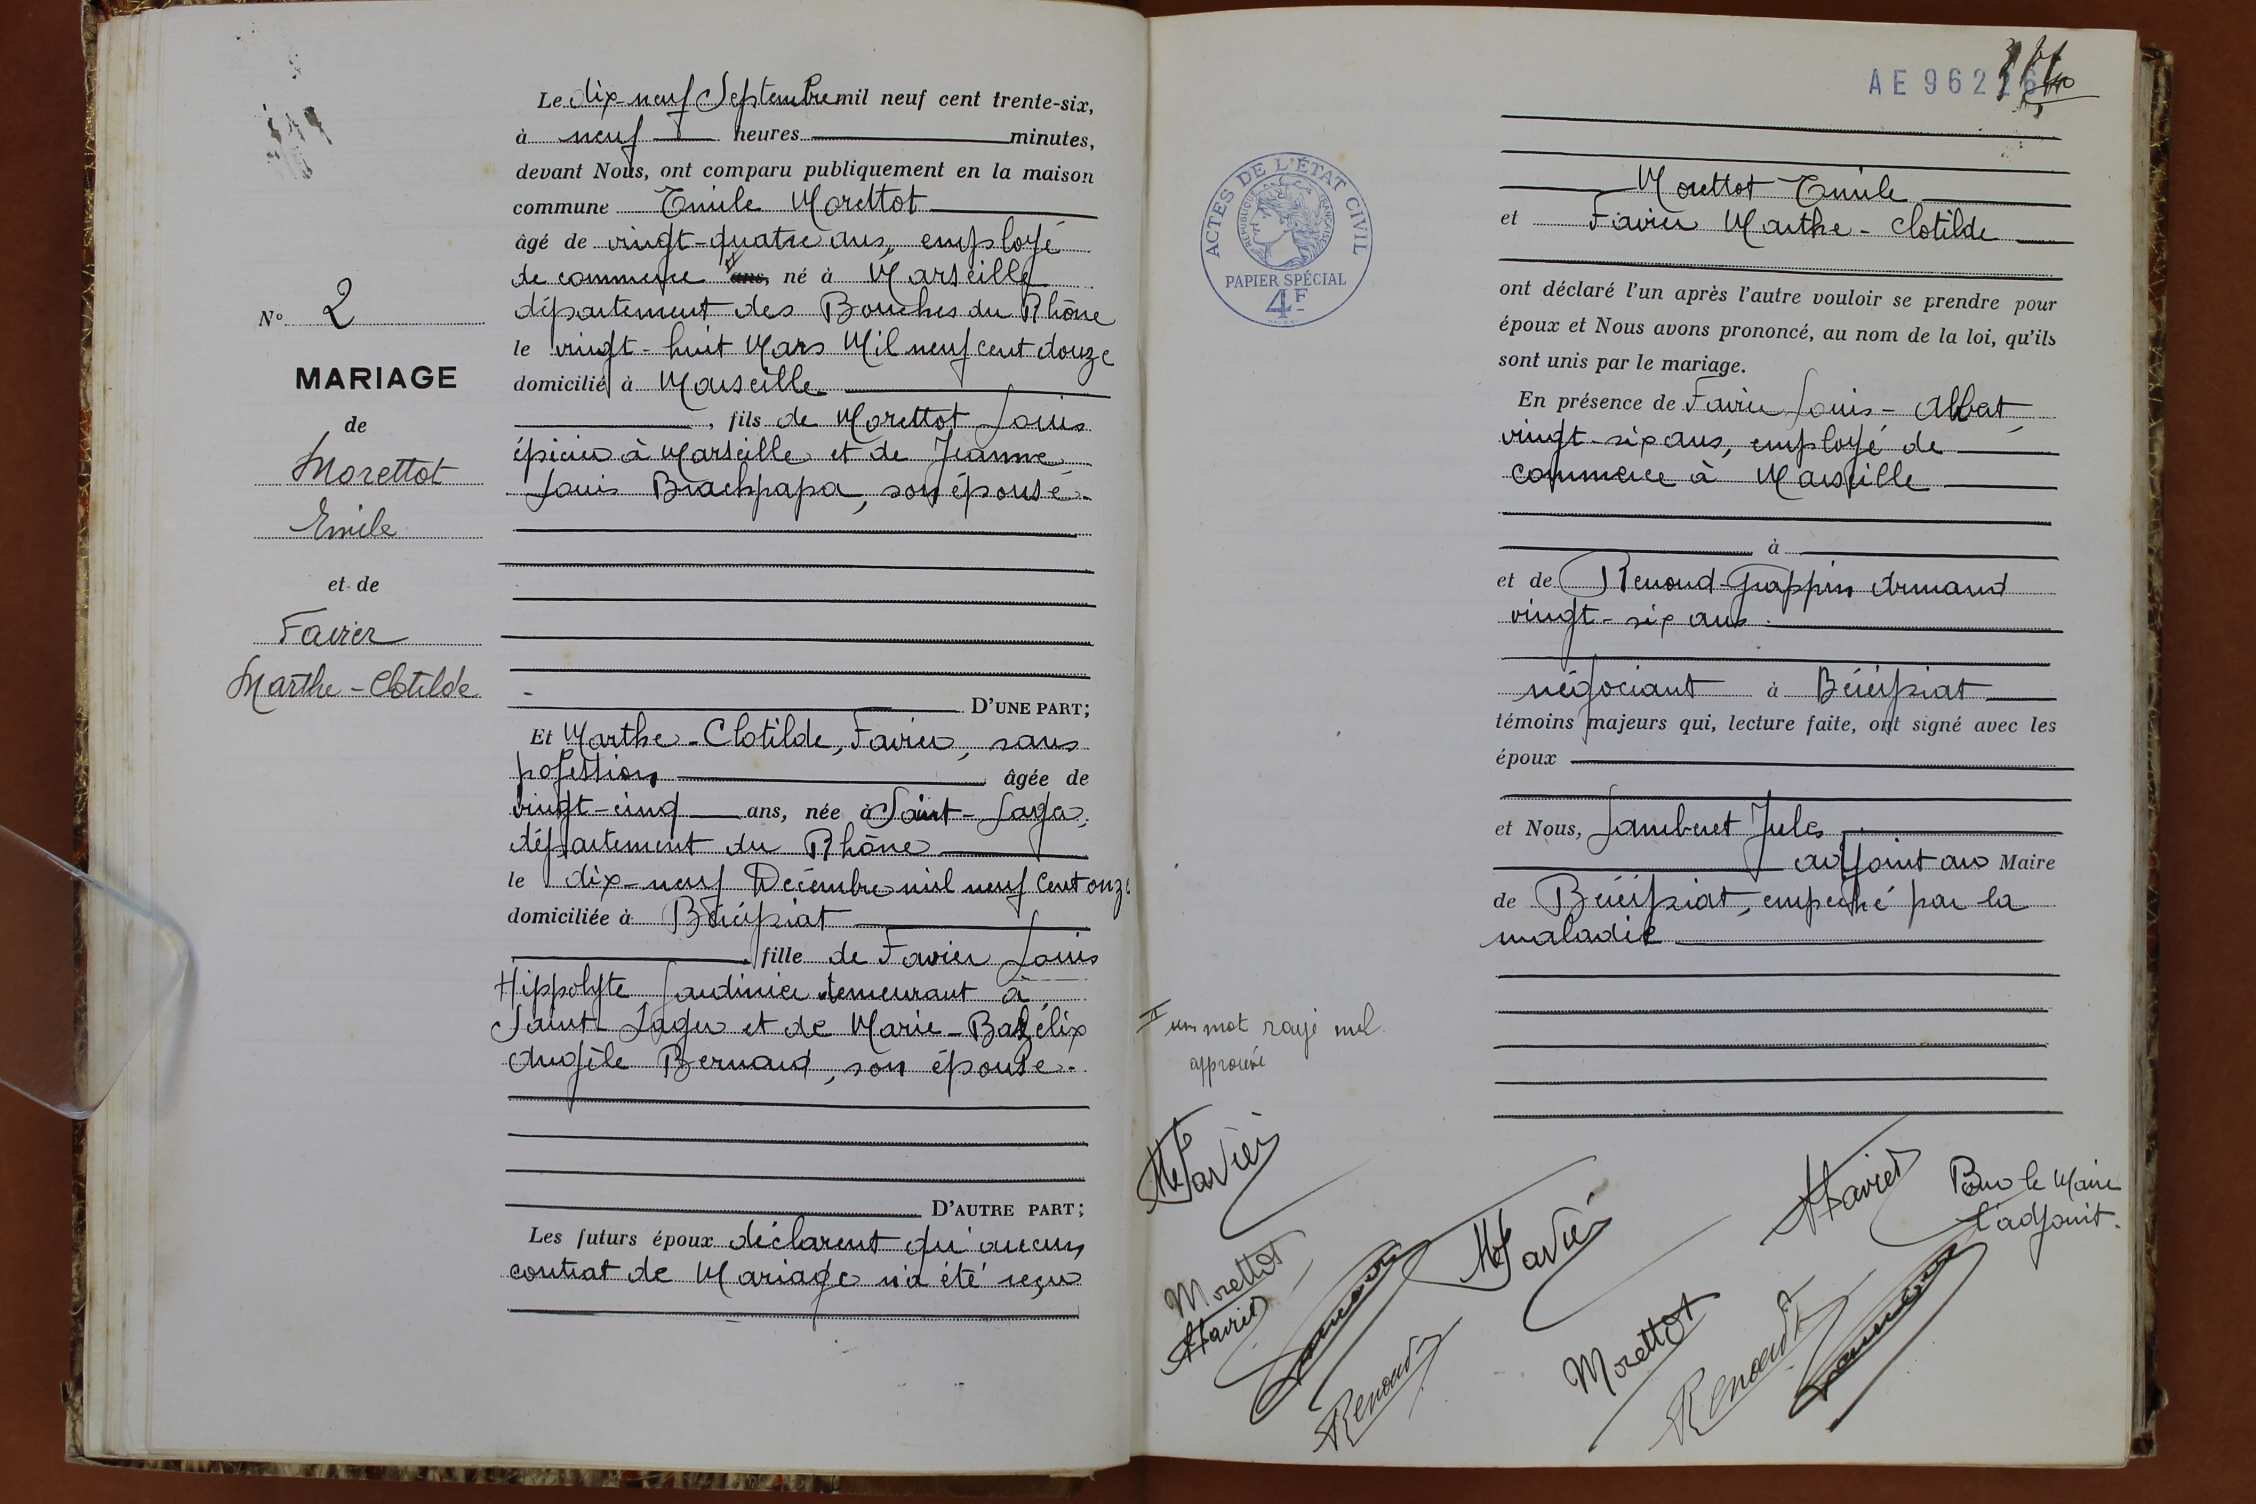 Le dix-neuf Septembre mil neuf cent trente-six,
à neuf heures minutes,
devant Nous, ont comparu publiquement en la maison
commune Emile Morettot
âgé de vingt-quatre ans, employé
de commerce ans, né à Marseille
département des Bouches du Rhône
le vingt-huit Mars Mil neuf cent douze
domicilié à Marseille
, fils de Morettot Louis
épicier à Marseille et de Jeanne
Louis Brachpapa, son épouse.
D'UNE PART;
Et Marthe-Clotilde, Favier, sans
profession âgée de
vingt-cinq ans, née à Saint-Lager,
département du Rhône
le dix-neuf Décembre mil neuf cent onze
domiciliée à Béréziat
fille de Favier Louis
Hippolyte Jardinier demeurant à
Saint-Lager et de Marie-Bal élix
Angèle Bernard, son épouse.
D'AUTRE PART;
Les futurs époux déclarent qu'aucun
contrat de Mariage n'a été reçu
N° 2
MARIAGE
de
Morettot
Emile
et de
Favier
Marthe-Clotilde
AE 962
ACTES DE L'ÉTAT CIVIL
RÉPUBLIQUE FRANÇAISE
PAPIER SPÉCIAL
4F
Morettot Emile
et Favier Marthe-Clotilde
ont déclaré l'un après l'autre vouloir se prendre pour
époux et Nous avons prononcé, au nom de la loi, qu'ils
sont unis par le mariage.
En présence de Favier Louis-Albat,
vingt-six ans, employé de
commerce à Marseille
à
et de Renoud-Grappin Armand
vingt-six ans
négociant à Béréziat
témoins majeurs qui, lecture faite, ont signé avec les
époux
et Nous, Jamberet Jules
adjoint au Maire
de Béréziat, empeché par la
maladie
II un mot rayé nul
approuvé
M Favier
Morettot
Favier
Renoud
M Favier
Morettot
Renoud
Favier
Pour le Maire
l'adjoint.